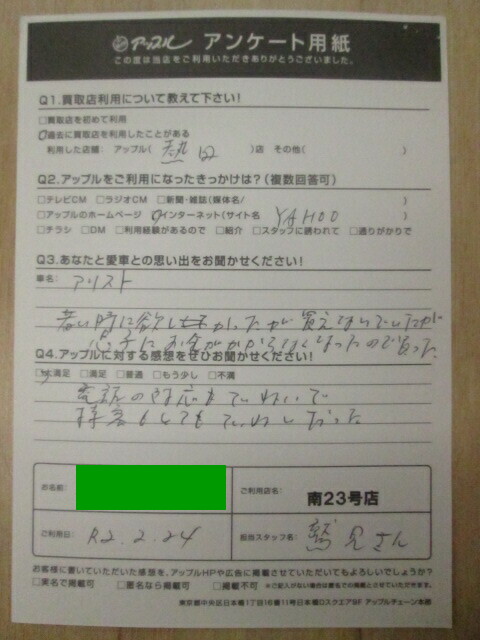 アップル アンケート用紙
この度は当店をご利用いただきありがとうございました。
Q1.買取店利用について教えて下さい！
□買取店を初めて利用
□過去に買取店を利用したことがある
利用した店舗: アップル( 熱田 )店 その他( )
Q2.アップルをご利用になったきっかけは？(複数回答可)
□テレビCM □ラジオCM □新聞・雑誌(媒体名/ )
□アップルのホームページ □インターネット(サイト名 YAHOO )
□チラシ □DM □利用経験があるので □紹介 □スタッフに誘われて □通りがかりで
Q3.あなたと愛車との思い出をお聞かせください！
車名: アリスト
若い時に欲しかったが買えないでいたが
息子にお金がかからなくなったので買った
Q4.アップルに対する感想をぜひお聞かせください！
□大満足 □満足 □普通 □もう少し □不満
電話の対応もていねいで
接客もとてもていねいだった
お名前:
ご利用店名: 南23号店
ご利用日: R2.2.24
担当スタッフ名: 鷲見さん
お客様に書いていただいた感想を、アップルHPや広告に掲載させていただいてもよろしいでしょうか？
□実名で掲載可 □匿名なら掲載可 □掲載不可 ※ご記入がない場合は匿名での掲載とさせていただきます。
東京都中央区日本橋1丁目16番11号日本橋Dスクエア9F アップルチェーン本部